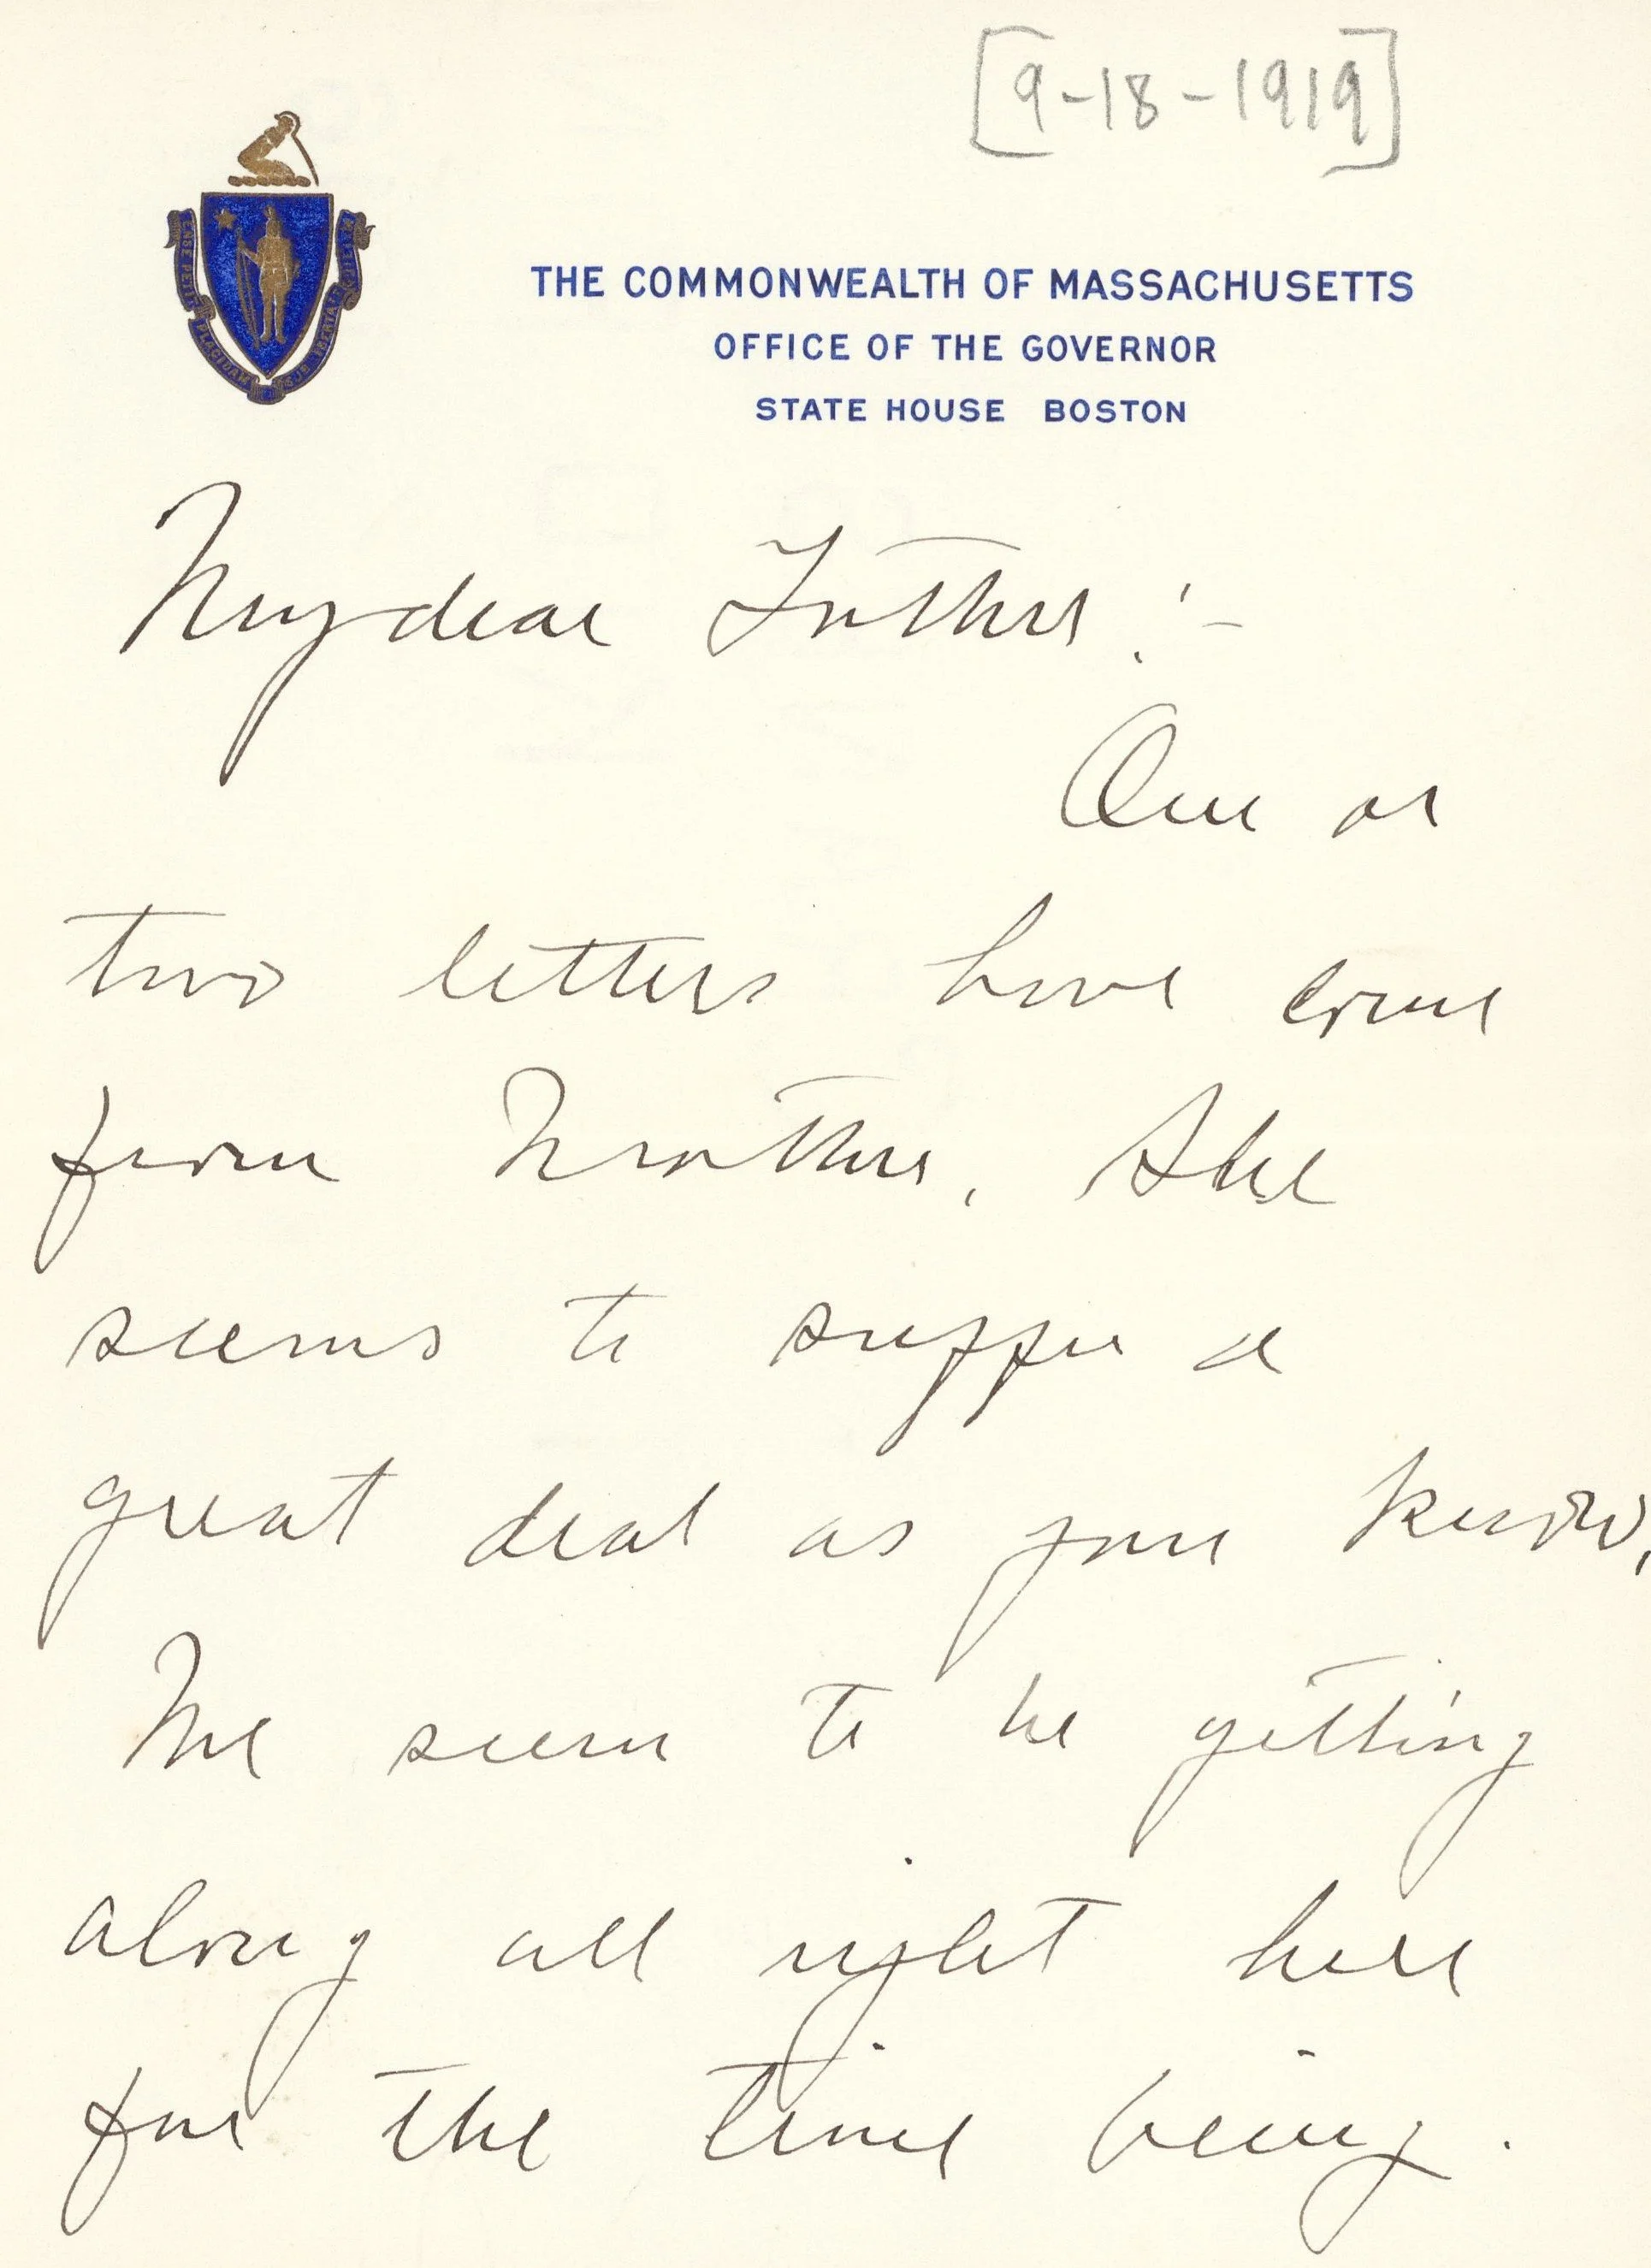 [9-18-1919]
ENSE PETIT PLACIDAM SUB LIBERTATE QUIETEM
THE COMMONWEALTH OF MASSACHUSETTS
OFFICE OF THE GOVERNOR
STATE HOUSE BOSTON
My dear Father:-
One or
two letters have come
from Mother. She
seems to suffer a
great deal as you know.
We seem to be getting
along all right here
for the time being.